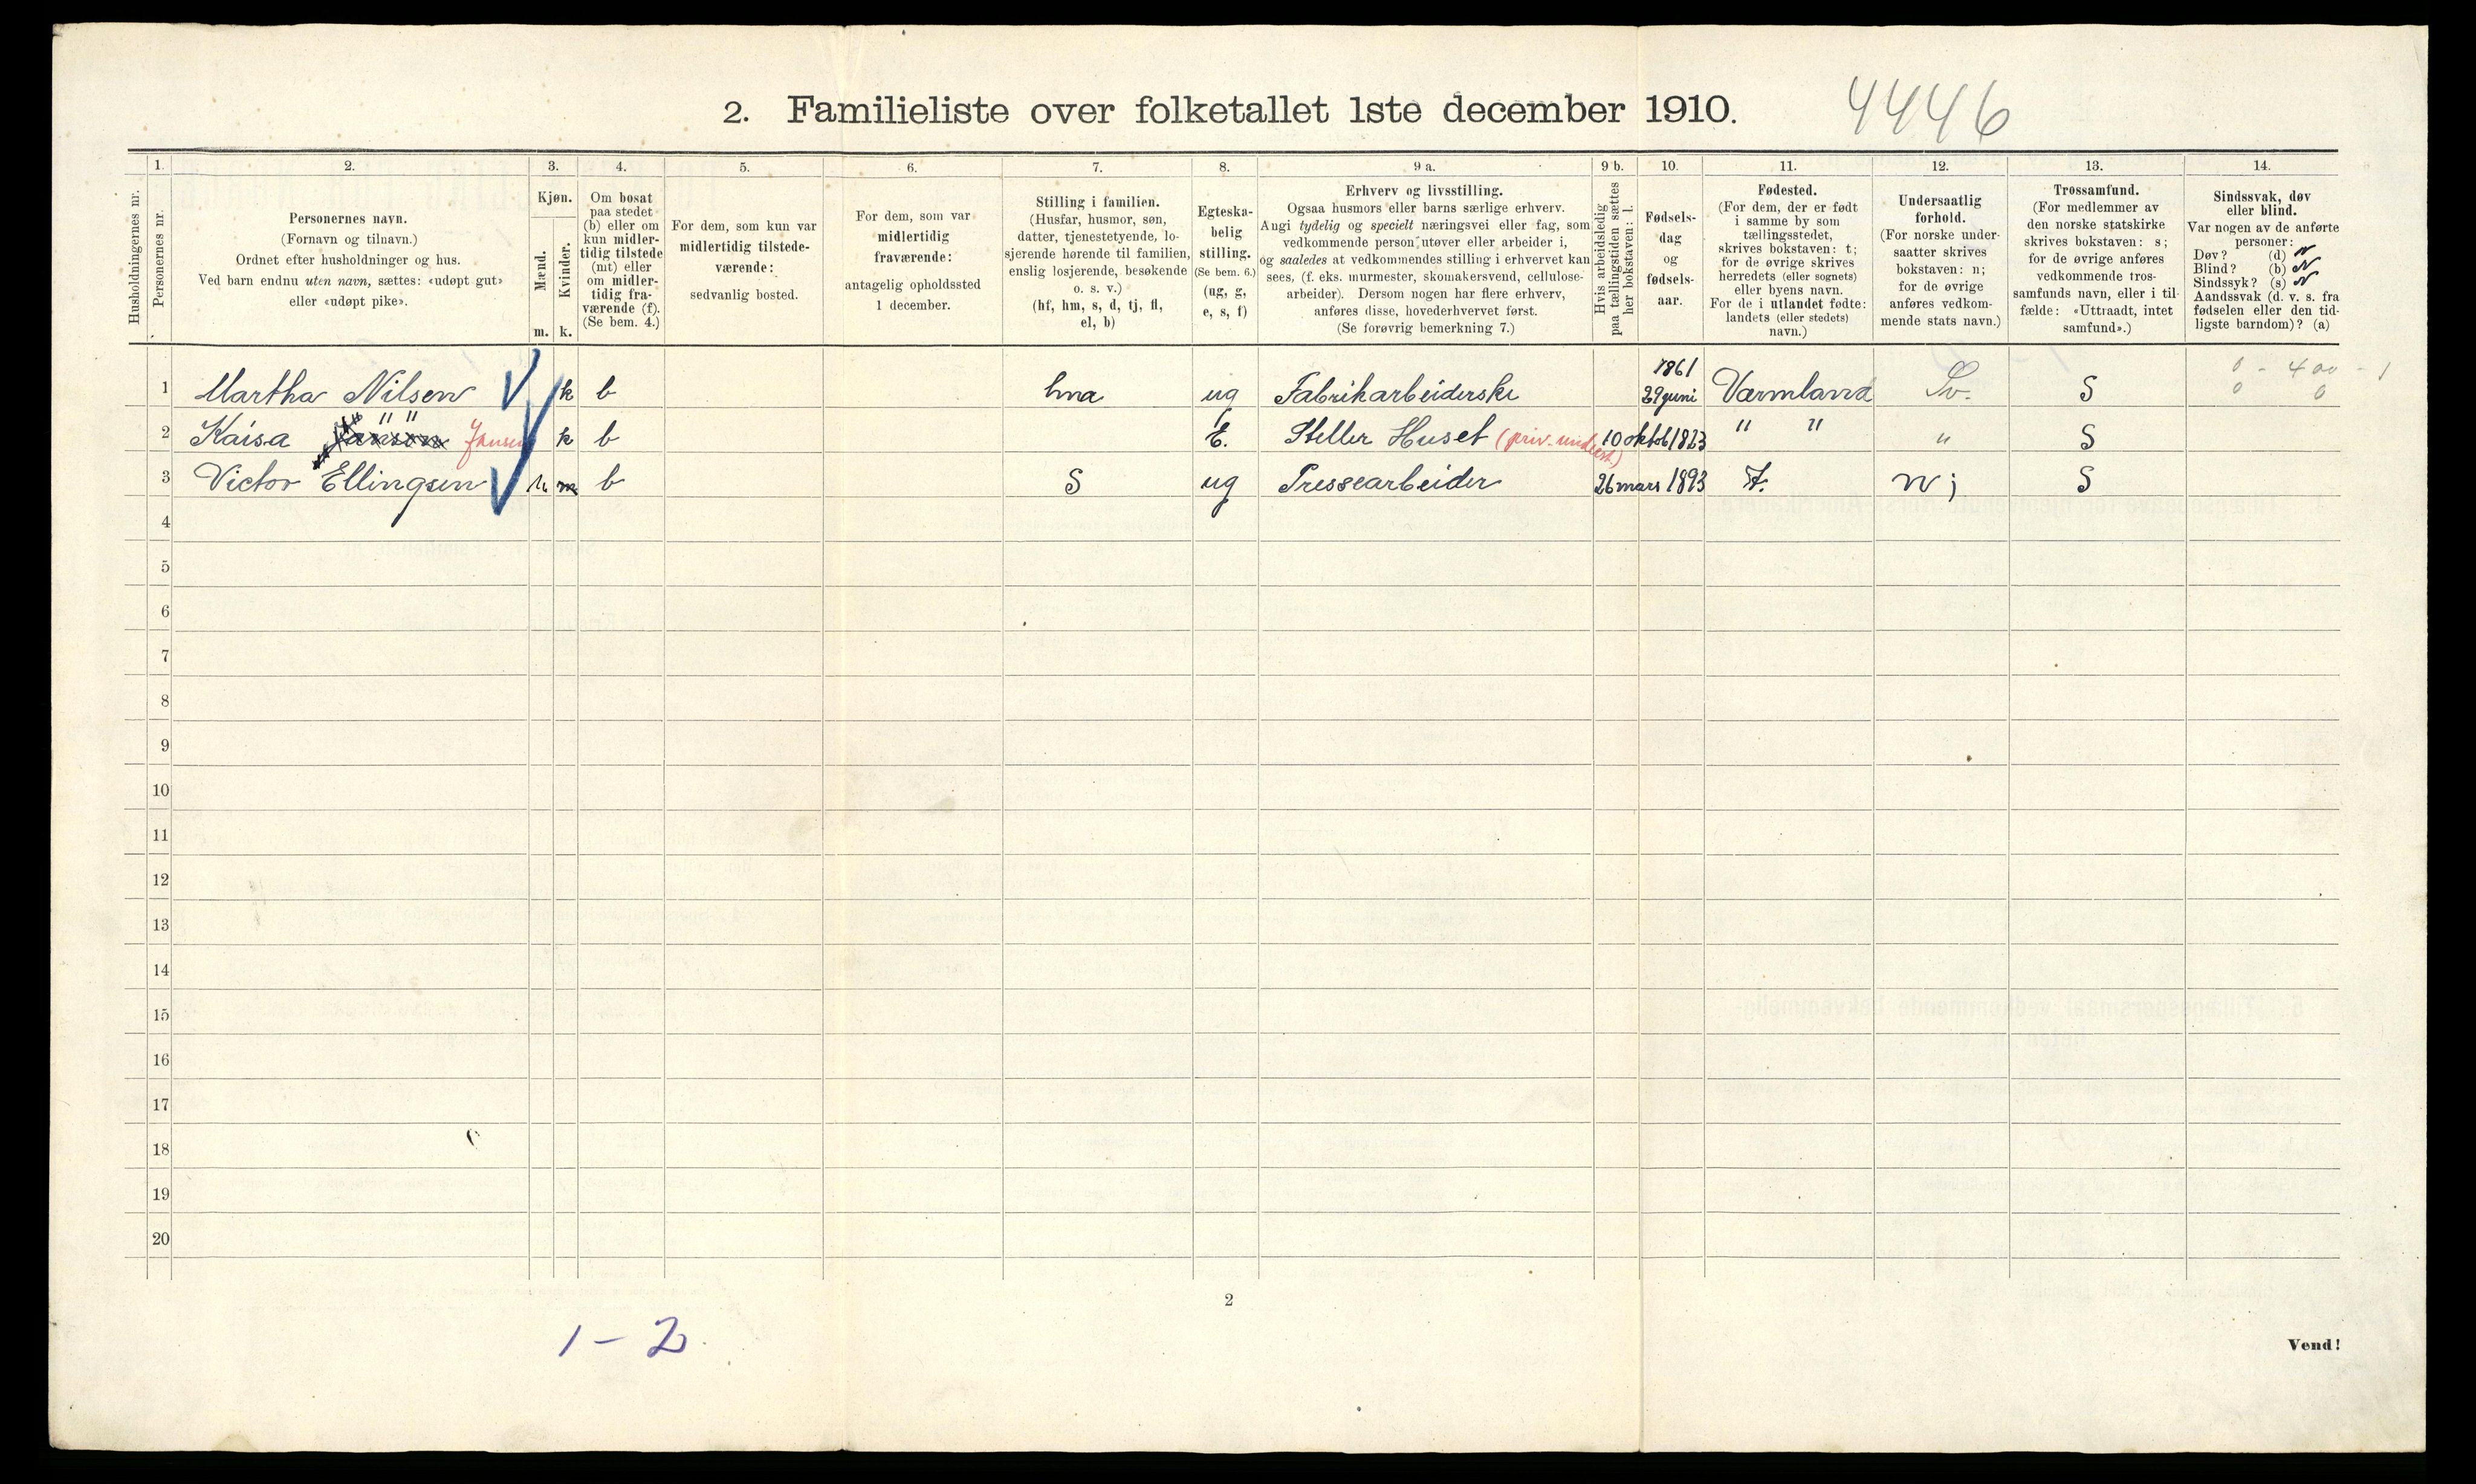 2. Familieliste over folketallet 1ste december 1910.
4446
1. 2. 3. 4. 5. 6. 7. 8. 9 a. 9 b. 10. 11. 12. 13. 14.
Husholdningernes nr.
Personernes nr.
Personernes navn.
(Fornavn og tilnavn.)
Ordnet efter husholdninger og hus.
Ved barn endnu uten navn, sættes: «udøpt gut»
eller «udøpt pike».
Kjøn.
Mænd.
m.
Kvinder.
k.
Om bosat
paa stedet
(b) eller om
kun midler-
tidig tilstede
(mt) eller
om midler-
tidig fra-
værende (f).
(Se bem. 4.)
For dem, som kun var
midlertidig tilstede-
værende:
sedvanlig bosted.
For dem, som var
midlertidig
fraværende:
antagelig opholdssted
1 december.
Stilling i familien.
(Husfar, husmor, søn,
datter, tjenestetyende, lo-
sjerende hørende til familien,
enslig losjerende, besøkende
o. s. v.)
(hf, hm, s, d, tj, fl,
el, b)
Egteska-
belig
stilling.
(Se bem. 6.)
(ug, g,
e, s, f)
Erhverv og livsstilling.
Ogsaa husmors eller barns særlige erhverv.
Angi tydelig og specielt næringsvei eller fag, som
vedkommende person utøver eller arbeider i,
og saaledes at vedkommendes stilling i erhvervet kan
sees, (f. eks. murmester, skomakersvend, cellulose-
arbeider). Dersom nogen har flere erhverv,
anføres disse, hovederhvervet først.
(Se forøvrig bemerkning 7.)
Hvis arbeidsledig
paa tællingstiden sættes
her bokstaven: l.
Fødsels-
dag
og
fødsels-
aar.
Fødested.
(For dem, der er født
i samme by som
tællingsstedet,
skrives bokstaven: t;
for de øvrige skrives
herredets (eller sognets)
eller byens navn.
For de i utlandet fødte:
landets (eller stedets)
navn.)
Undersaatlig
forhold.
(For norske under-
saatter skrives
bokstaven: n;
for de øvrige
anføres vedkom-
mende stats navn.)
Trossamfund.
(For medlemmer av
den norske statskirke
skrives bokstaven: s;
for de øvrige anføres
vedkommende tros-
samfunds navn, eller i til-
fælde: «Uttraadt, intet
samfund».)
Sindssvak, døv
eller blind.
Var nogen av de anførte
personer:
Døv? (d) N
Blind? (b) N
Sindssyk? (s) N
Aandssvak (d. v. s. fra
fødselen eller den tid-
ligste barndom)? (a)
0 - 400 - 1
0 0
1 Martha Nilsen k b hm ug Fabrikarbeiderske 1861 29 juni Værmland Sv. S
2 Kaisa " " Jansen Jansen k b E. Steller Huset (priv. underst) 10 oktob 1823 " " " S
3 Victor Ellingsen m b S ug Pressearbeider 26 mars 1893 t. n; S
4
5
6
7
8
9
10
11
12
13
14
15
16
17
18
19
20
2
1-2
Vend!